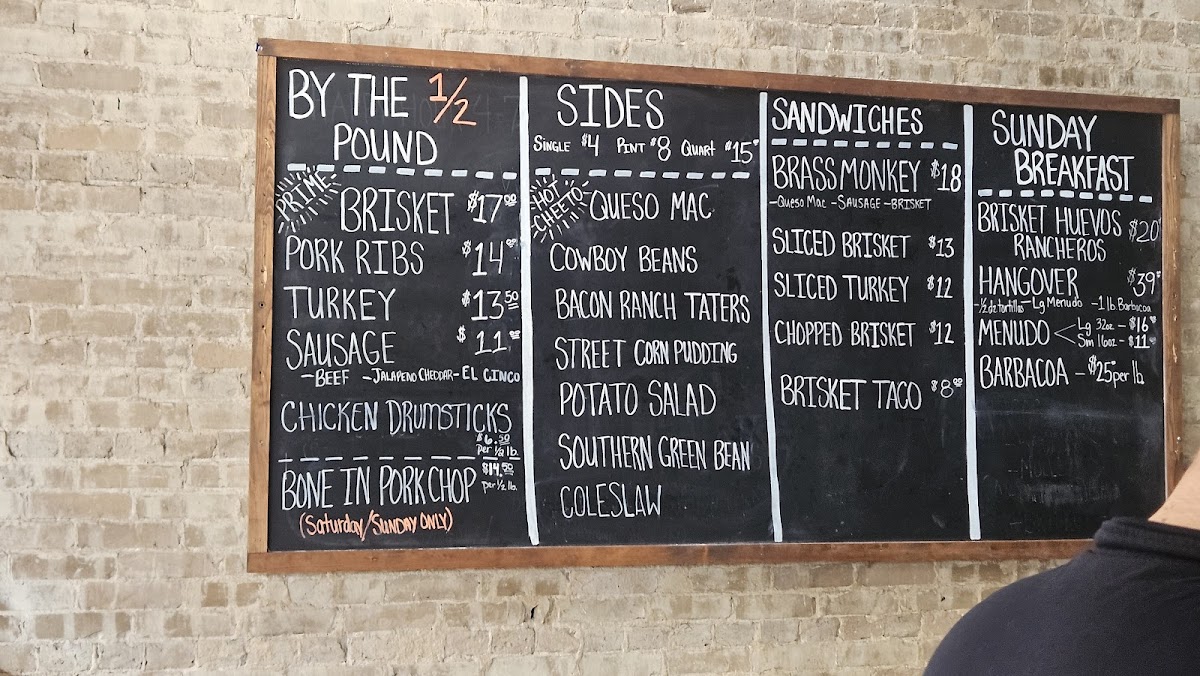 BY THE 1/2
POUND
PRIME
BRISKET $17.00
PORK RIBS $14.00
TURKEY $13.50
SAUSAGE $11.00
-BEEF -JALAPENO CHEDDAR -EL CINCO
CHICKEN DRUMSTICKS
$6.50
per 1/2 lb.
BONE IN PORK CHOP $14.50 per 1/2 lb.
(Saturday/SUNDAY ONLY)
SIDES
SINGLE $4 PINT $8 QUART $15
HOT CHEETO QUESO MAC
COWBOY BEANS
BACON RANCH TATERS
STREET CORN PUDDING
POTATO SALAD
SOUTHERN GREEN BEAN
COLESLAW
SANDWICHES
BRASS MONKEY $18
-Queso Mac -SAUSAGE -BRISKET
SLICED BRISKET $13
SLICED TURKEY $12
CHOPPED BRISKET $12
BRISKET TACO $8.00
SUNDAY
BREAKFAST
BRISKET HUEVOS $20
RANCHEROS
HANGOVER $39
-1/2 dz tortillas -Lg Menudo -1 lb. Barbacoa
MENUDO < Lg 32oz - $16
Sm 16oz - $11
BARBACOA - $25 per lb.